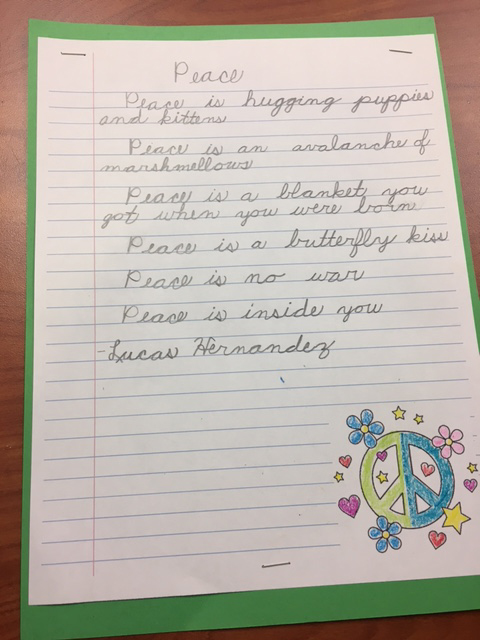 Peace
Peace is hugging puppies
and kittens
Peace is an avalanche of
marshmellows
Peace is a blanket you
got when you were born
Peace is a butterfly kiss
Peace is no war
Peace is inside you
-Lucas Hernandez